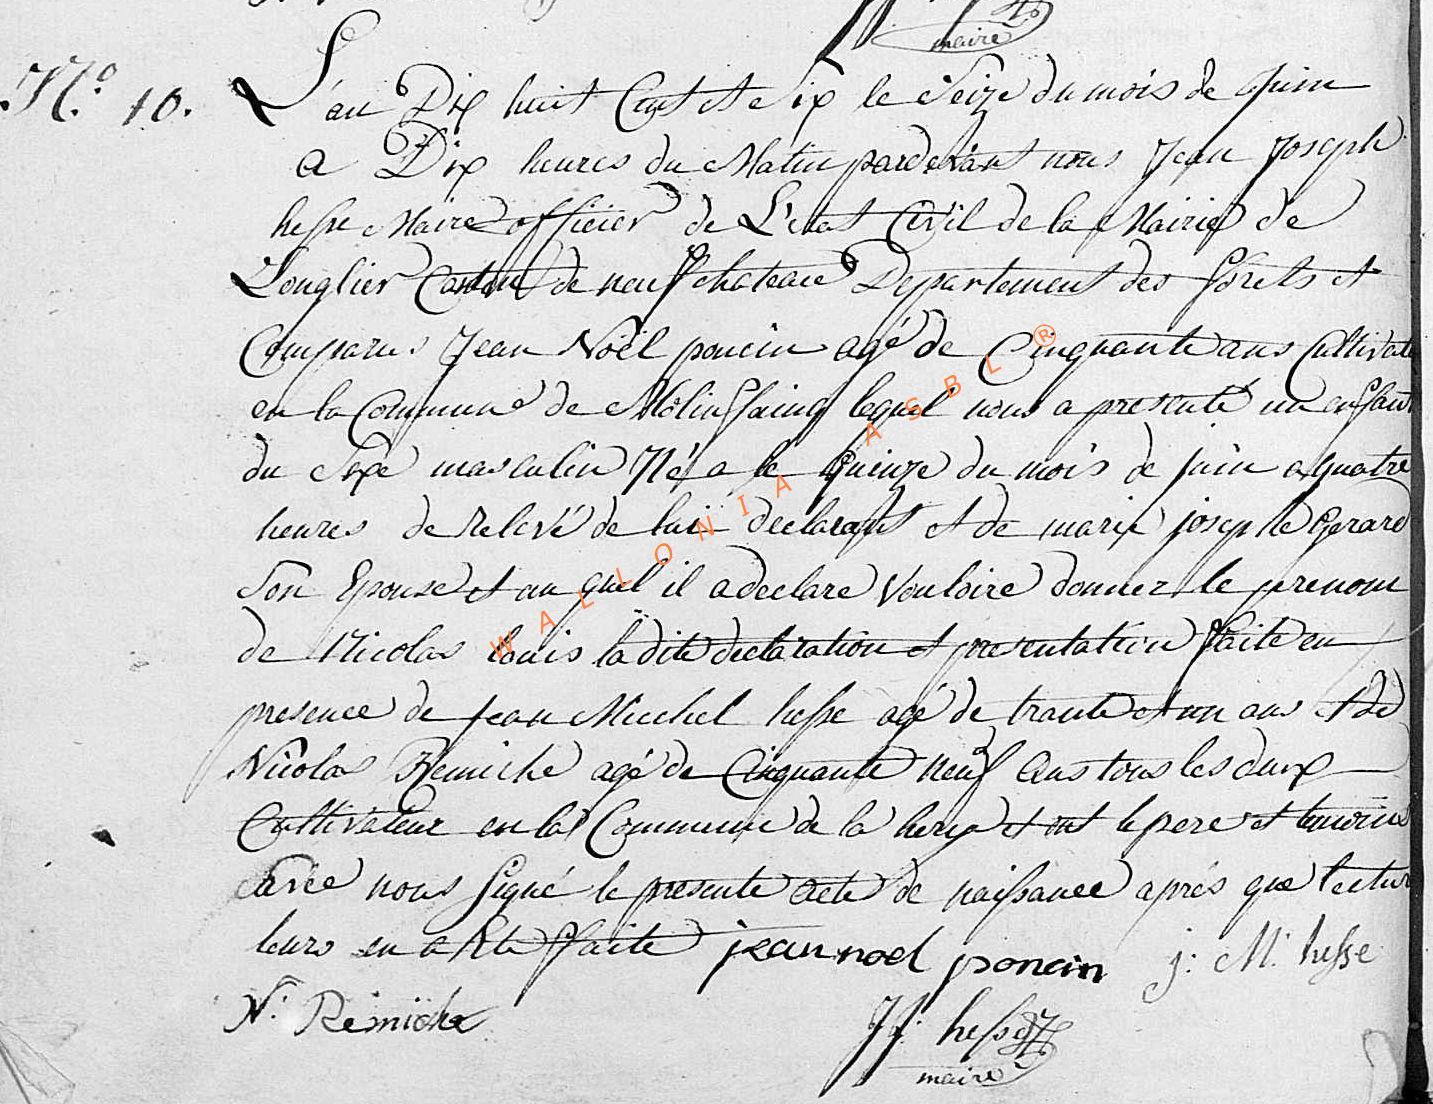 maire
N.º 10.
L'an Dix huit Cent et Six le Seize du mois de Juin
a Dix heures du Matin pardevant nous Jean Joseph
hesse Maire officier de L'etat Civil de la Mairie de
Longlier Canton de neufchateau Departement des forêts et
Comparus Jean Noël poncin agé de Cinquante ans Cultivate
en la Commune de Molinfaing lequel nous a presenté un enfant
du Sexe masculin Né a le quinze du mois de juin a quatre
heures de relevé de lui declarant et de marie josephe Gerard
Son Epouse et au quel il a declare Vouloire donner le prenom
de Nicolas louis la dite declaration et presentation faite en
presence de jean Micchel hesse agé de trante et un ans et de
Nicolas Remiche agé de Cinquante neuf Ans tous les deux
Cultivateur en la Commune de la hery et ont le pere et temoins
avec nous Signé le presente acte de naissance aprés que lectur
leurs en a Ete faite jean noel poncin j: M: hesse
N: Remiche JJ: hesse
maire
WALLONIA ASBL ®